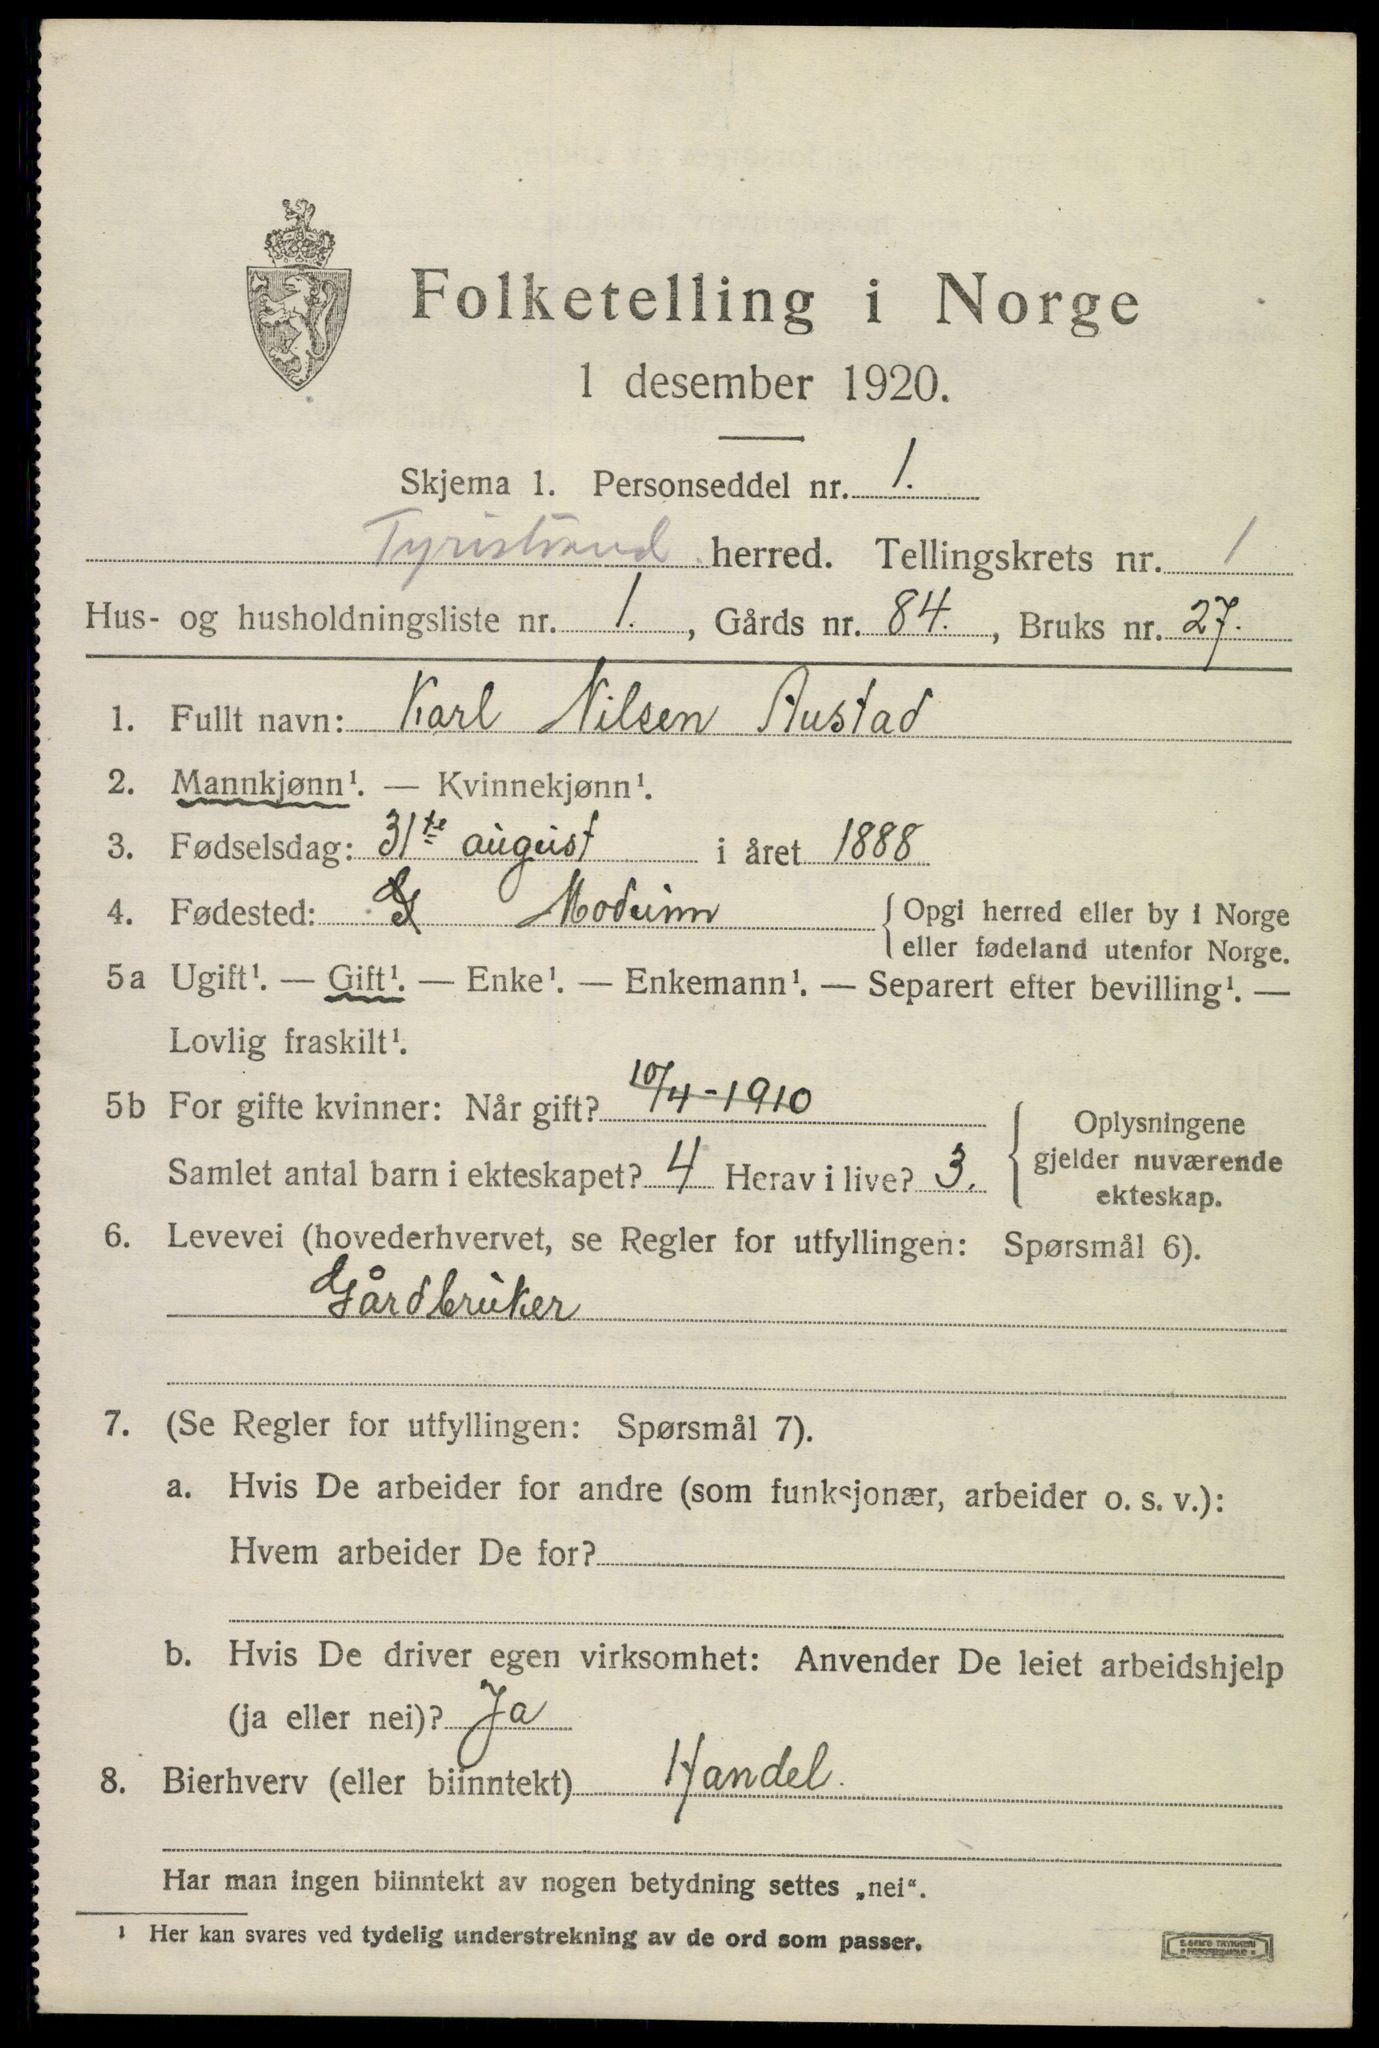 Folketelling i Norge
1 desember 1920.
Skjema 1. Personseddel nr. 1.
Tyristrand herred. Tellingskrets nr. 1
Hus- og husholdningsliste nr. 1., Gårds nr. 84., Bruks nr. 27.
1. Fullt navn: Karl Nilsen Austad
2. Mannkjønn¹. — Kvinnekjønn¹.
3. Fødselsdag: 31te august i året 1888
4. Fødested: Modum { Opgi herred eller by i Norge
eller fødeland utenfor Norge.
5a Ugift¹. — Gift¹. — Enke¹. — Enkemann¹. — Separert efter bevilling¹. —
Lovlig fraskilt¹.
5b For gifte kvinner: Når gift? 10/4-1910
Samlet antal barn i ekteskapet? 4 Herav i live? 3.
{ Oplysningene
gjelder nuværende
ekteskap.
6. Levevei (hovederhvervet, se Regler for utfyllingen: Spørsmål 6).
Gårdbruker
7. (Se Regler for utfyllingen: Spørsmål 7).
a. Hvis De arbeider for andre (som funksjonær, arbeider o. s. v.):
Hvem arbeider De for?
b. Hvis De driver egen virksomhet: Anvender De leiet arbeidshjelp
(ja eller nei)? Ja
8. Bierhverv (eller biinntekt) Handel.
Har man ingen biinntekt av nogen betydning settes „nei“.
¹ Her kan svares ved tydelig understrekning av de ord som passer.